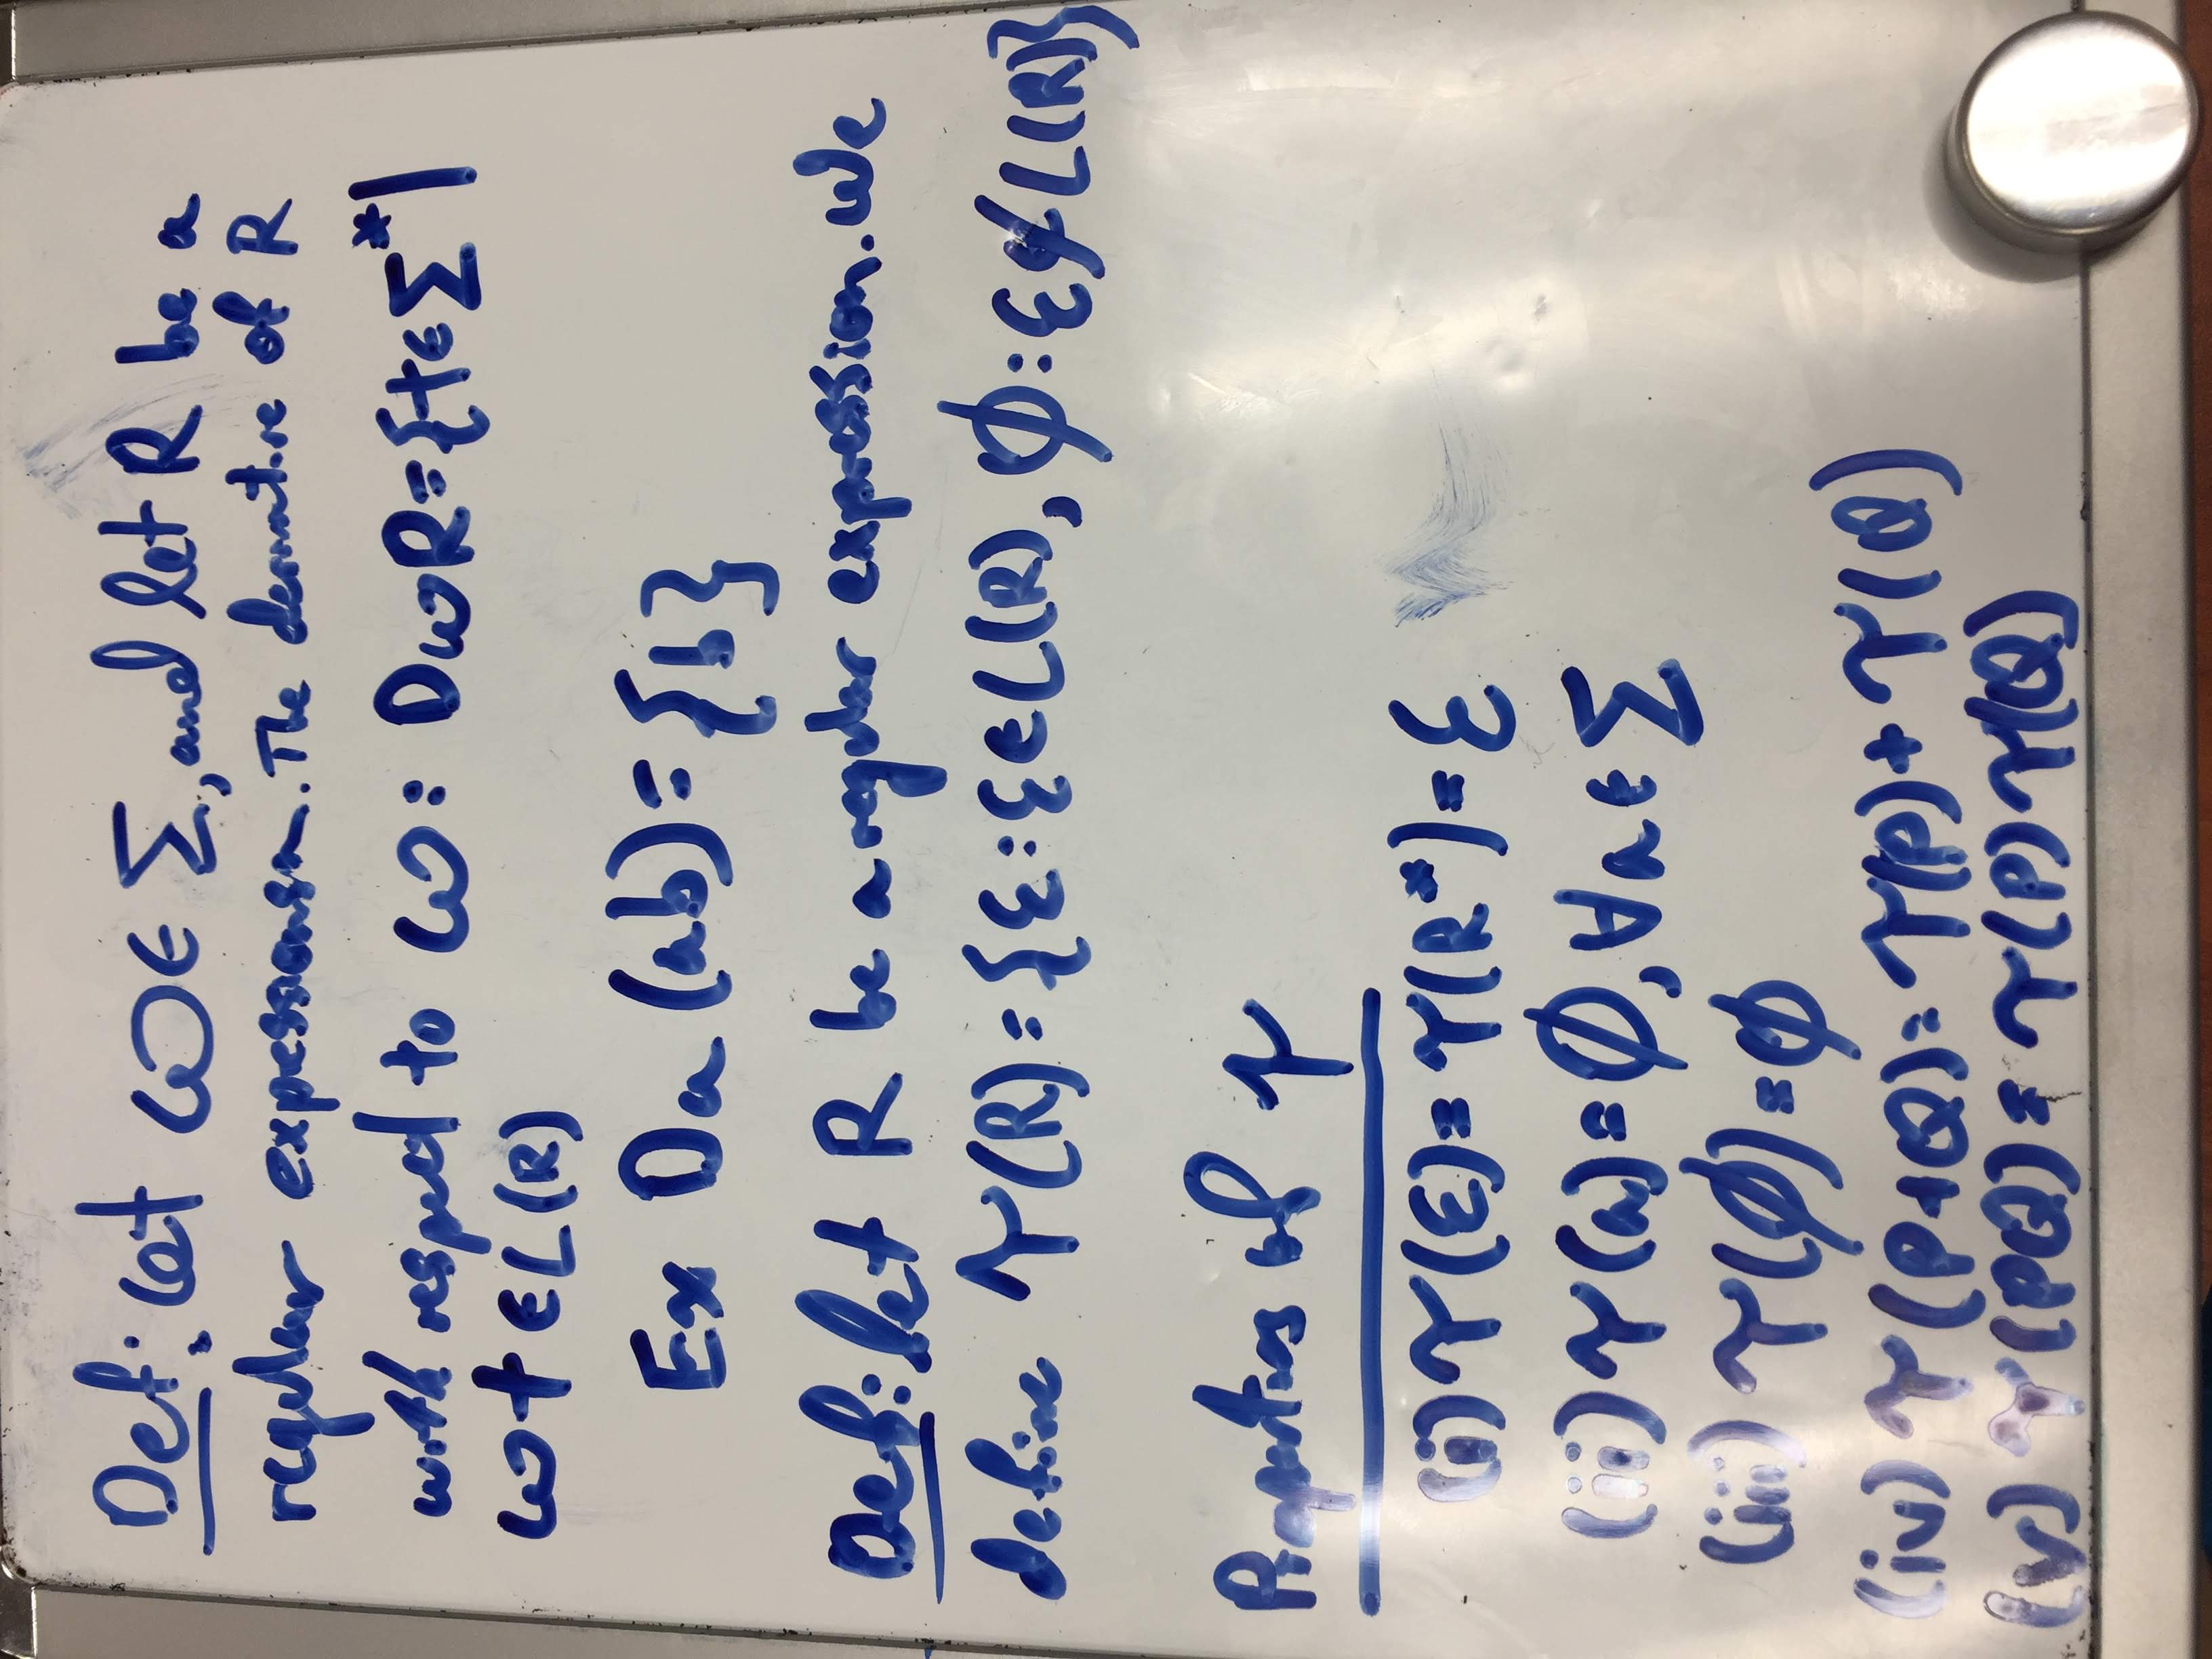 Def: let ω∈ Σ, and let R be a
regular expession. The derivative of R
with respect to ω: DωR={t∈Σ*|
ωt∈L(R)
Ex Da (ab)={b}
Def: let R be a regular expression. We
define τ(R)={ε:ε∈L(R), ϕ:ε∉L(R)}
Properties of τ
(i) τ(ε)=τ(R*)=ε
(ii) τ(a)=ϕ, ∀a∈Σ
(iii) τ(ϕ)=ϕ
(iv) τ(P+Q)=τ(P)+τ(Q)
(v) τ(PQ)=τ(P)τ(Q)